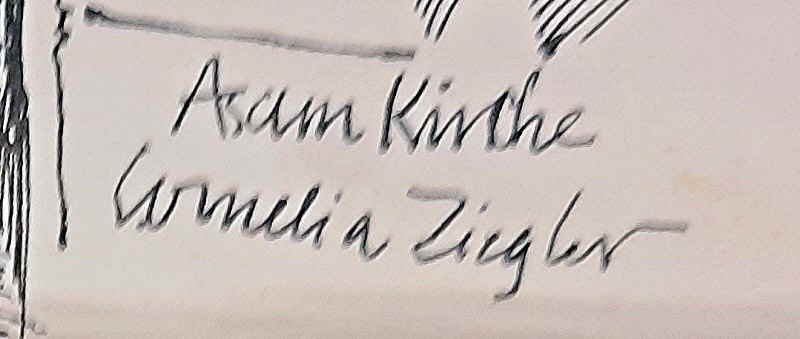 Asam Kirche
Cornelia Ziegler